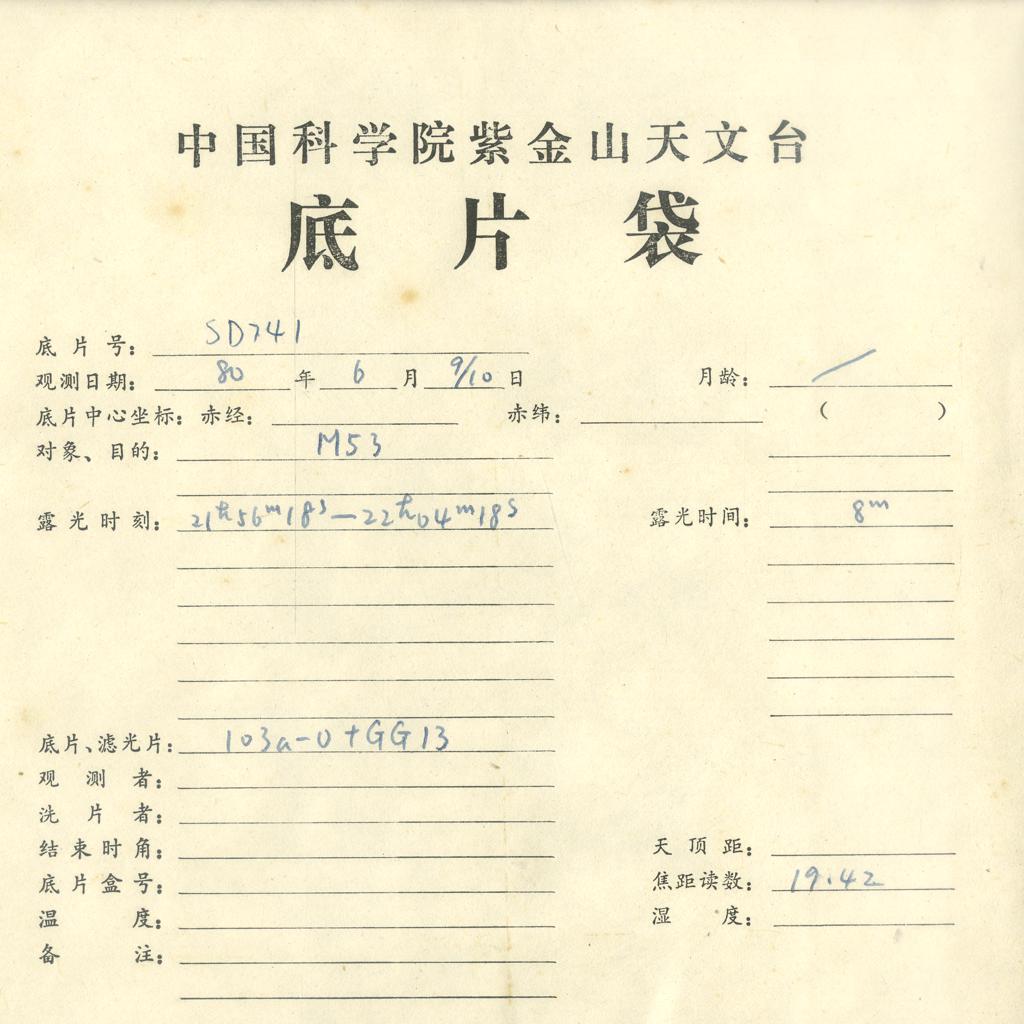 中国科学院紫金山天文台
底片袋
底片号： SD741
观测日期： 80 年 6 月 9/10 日 月龄： /
底片中心坐标：赤经： 赤纬： （ ）
对象、目的： M53
露光时刻： 21h56m18s—22h04m18s 露光时间： 8m
底片、滤光片： 103a-O+GG13
观测者：
洗片者：
结束时角： 天顶距：
底片盒号： 焦距读数： 19.42
温度： 湿度：
备注：